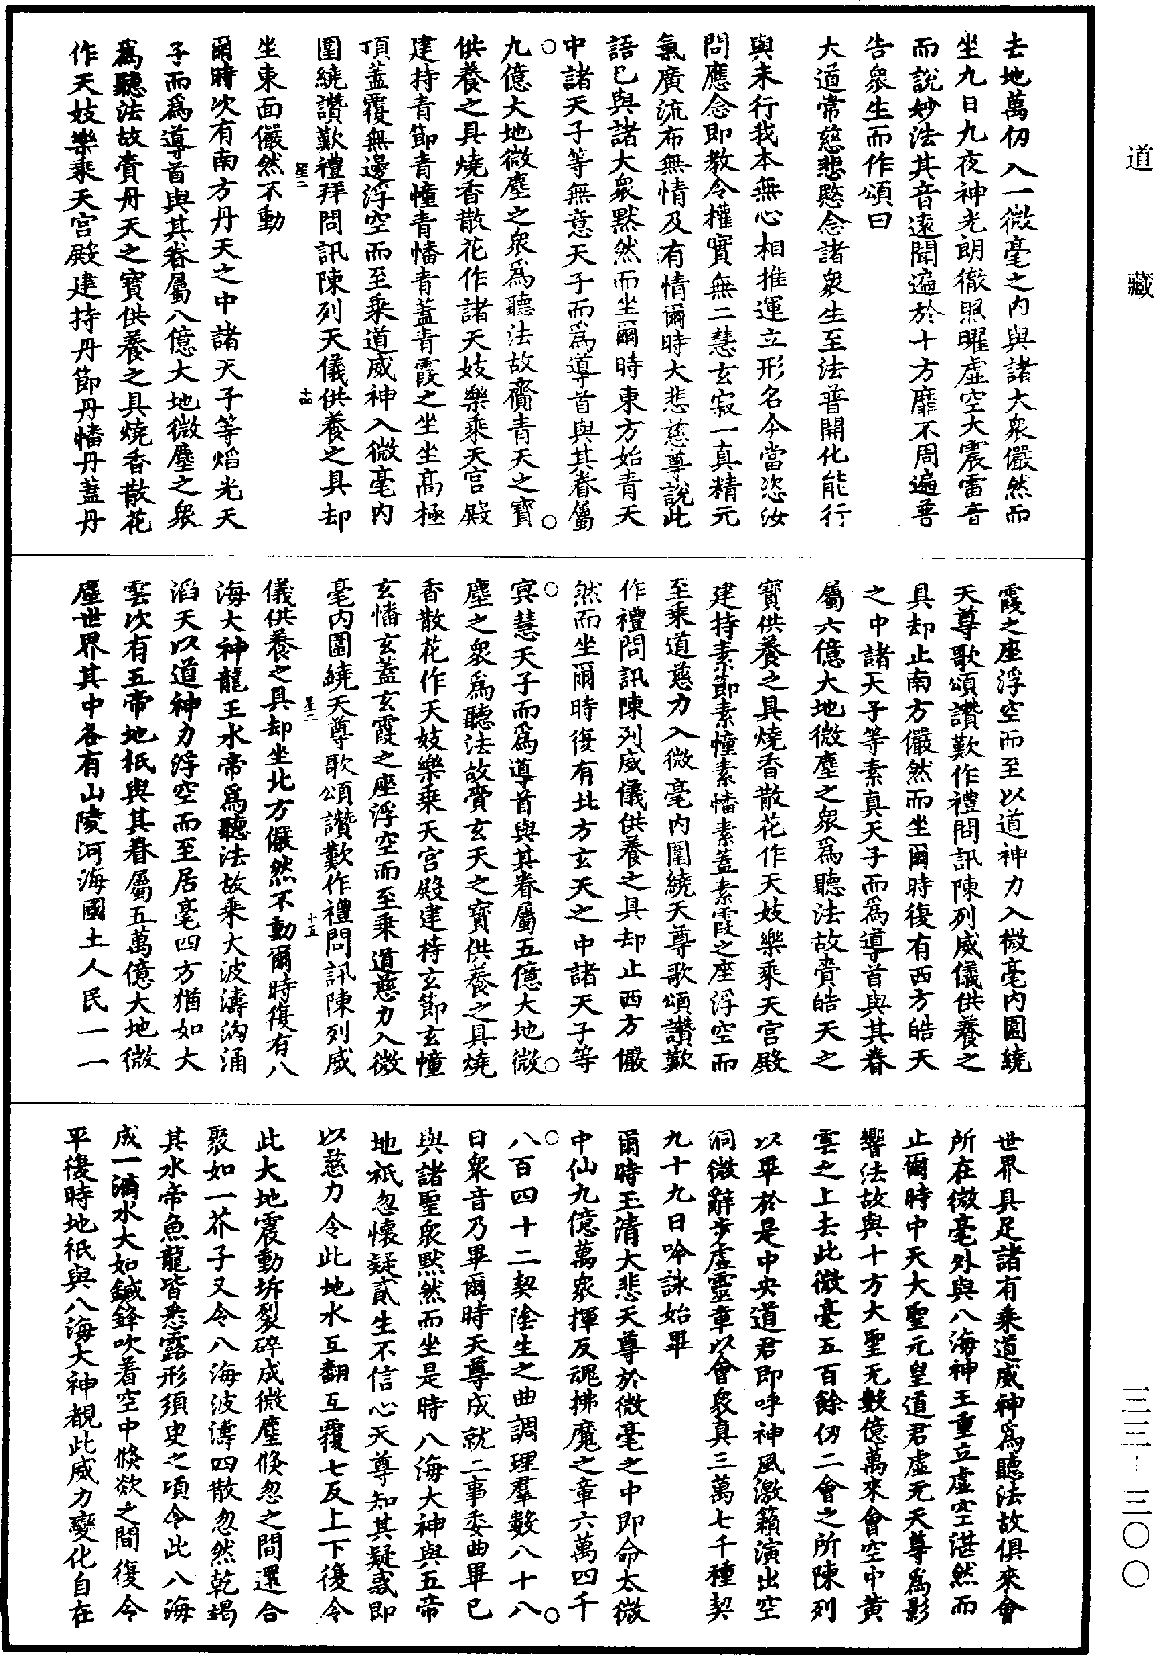 道藏
三三-三〇〇
去地萬仞入一微毫之内與諸大衆儼然而
坐九日九夜神光朗徹照曜虛空大震雷音
而說妙法其音遠聞遍於十方靡不周遍普
告衆生而作頌曰
大道常慈悲愍念諸衆生至法普開化能行
與未行我本無心相推運立形名今當恣汝
問應念即教令權實無二慧玄寂一真精元
氣廣流布無情及有情爾時大悲慈尊說此
語已與諸大衆默然而坐爾時東方始青天
中諸天子等無意天子而爲導首與其眷屬
九億大地微塵之衆爲聽法故齎青天之寶
供養之具燒香散花作諸天妓樂乘天宫殿
建持青節青幢青幡青蓋青霞之坐坐高極
頂蓋覆無邊浮空而至乘道威神入微毫内
圍繞讚歎禮拜問訊陳列天儀供養之具却
星二
十四
坐東面儼然不動
爾時次有南方丹天之中諸天子等焰光天
子而爲導首與其眷屬八億大地微塵之衆
爲聽法故賫丹天之寶供養之具燒香散花
作天妓樂乘天宫殿建持丹節丹幡丹蓋丹
霞之座浮空而至以道神力入微毫内圍繞
天尊歌頌讚歎作禮問訊陳列威儀供養之
具却止南方儼然而坐爾時復有西方皓天
之中諸天子等素真天子而爲導首與其眷
屬六億大地微塵之衆爲聽法故賫皓天之
寶供養之具燒香散花作天妓樂乘天宫殿
建持素節素幢素幡素蓋素霞之座浮空而
至乘道慈力入微毫内圍繞天尊歌頌讚歎
作禮問訊陳列威儀供養之具却止西方儼
然而坐爾時復有北方玄天之中諸天子等
冥慧天子而爲導首與其眷屬五億大地微
塵之衆爲聽法故賫玄天之寶供養之具燒
香散花作天妓樂乘天宫殿建持玄節玄幢
玄幡玄蓋玄霞之座浮空而至乘道慈力入微
毫内圍繞天尊歌頌讚歎作禮問訊陳列威
星二
十五
儀供養之具却坐北方儼然不動爾時復有八
海大神龍王水帝爲聽法故乘大波濤洶涌
滔天以道神力浮空而至居毫四方猶如大
雲次有五帝地祇與其眷屬五萬億大地微
塵世界其中各有山陵河海國土人民一一
世界具足諸有乘道威神爲聽法故俱來會
所在微毫外與八海神王重立虛空湛然而
止爾時中天大聖元皇道君虛无天尊爲影
響法故與十方大聖无數億萬來會空中黄
雲之上去此微毫五百餘仞二會之所陳列
以畢於是中央道君即呼神風激籟演出空
洞微辭步虛靈章以會衆真三萬七千種契
九十九日吟詠始畢
爾時玉清大悲天尊於微毫之中即命太微
中仙九億萬衆揮反魂拂魔之章六萬四千
八百四十二契陰生之曲調理羣數八十八
日衆音乃畢爾時天尊成就二事委曲畢已
與諸聖衆默然而坐是時八海大神與五帝
地祇忽懷疑貳生不信心天尊知其疑惑即
以慈力令此地水互翻互覆七反上下復令
此大地震動坼裂碎成微塵倏忽之間還合
聚如一芥子又令八海波濤四散忽然乾竭
其水帝魚龍皆悉露形須臾之頃令此八海
成一滴水大如鍼鋒吹着空中倏欻之間復令
平復時地祇與八海大神覩此威力變化自在